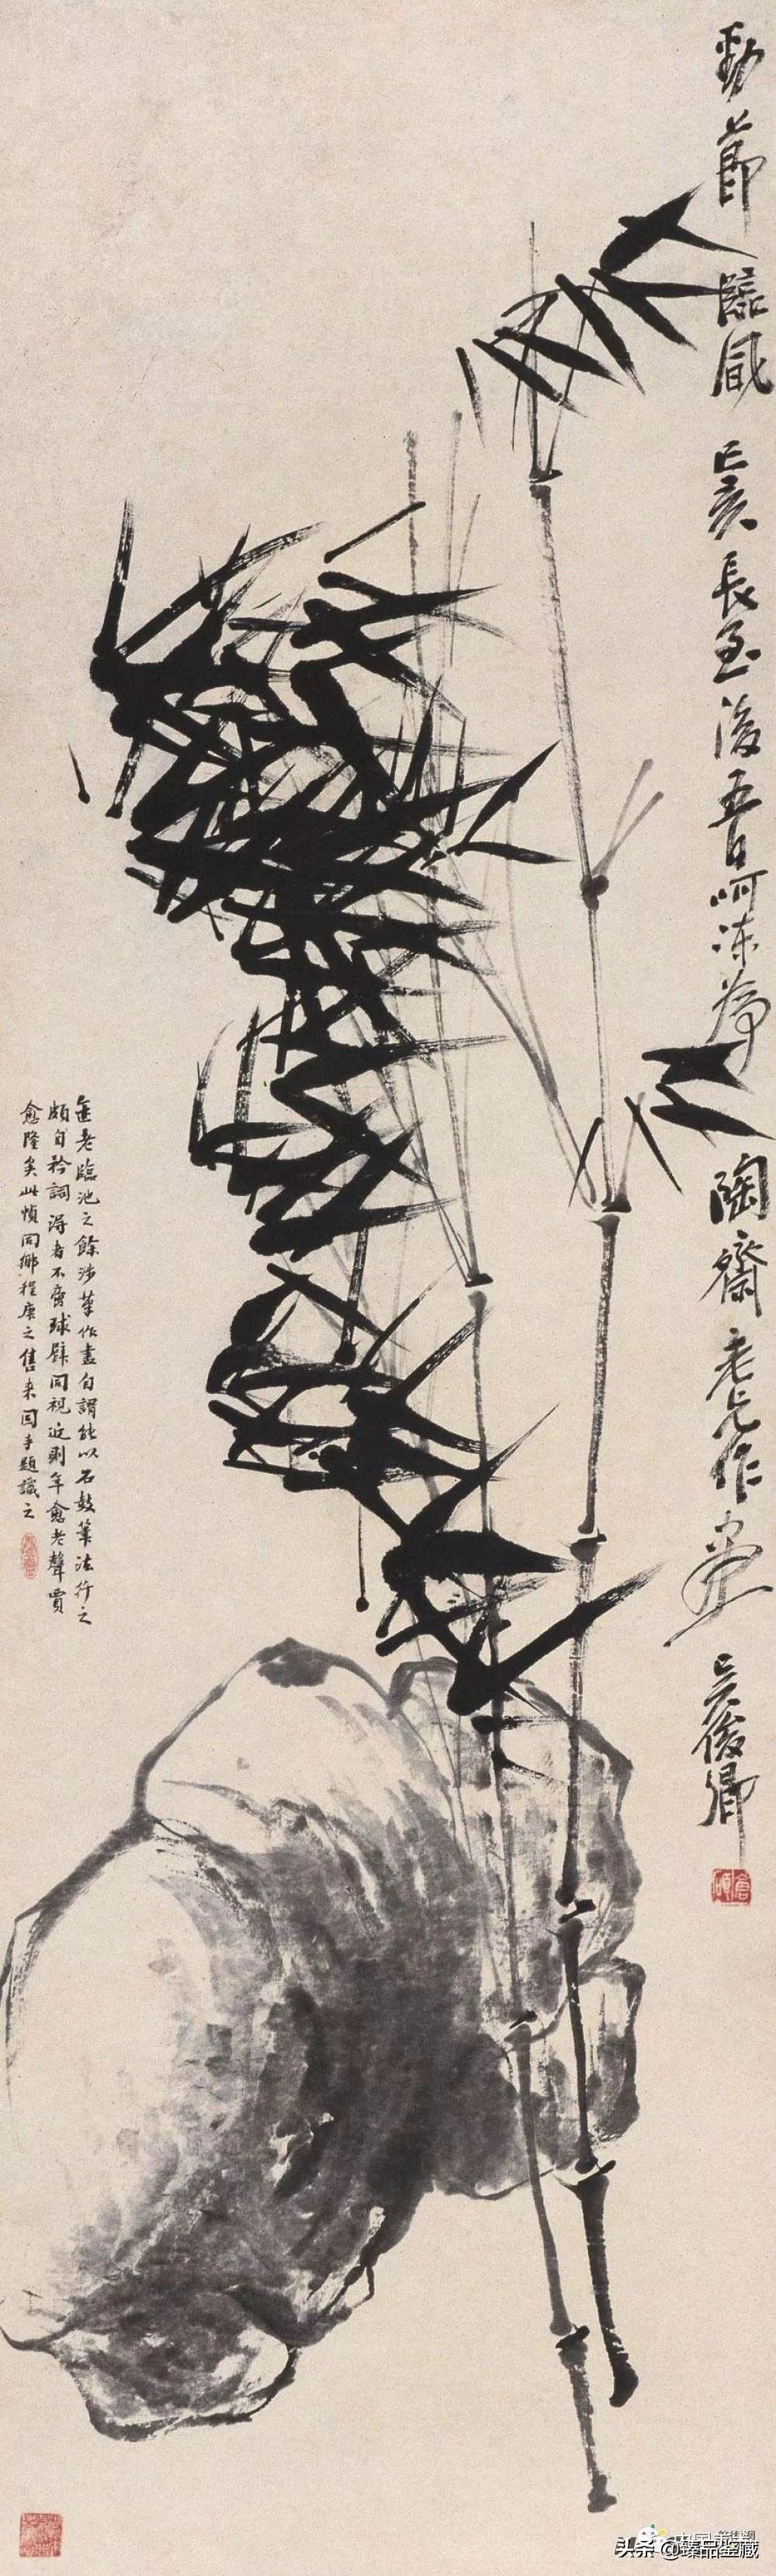 勁節臨風 己亥長至後五日呵凍為
陶齋老兄作畫 吳俊卿
倉碩
缶老臨池之餘涉筆作畫自謂能以石鼓筆法行之
頗自矜詞得者不啻球璧同視近則年愈老聲賈
愈隆矣此幀同鄉程庚之售來因手題識之
头条 @臻品鉴藏